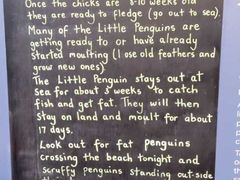 Once the chicks are 8-10 weeks old
they are ready to fledge (go out to sea).
Many of the Little Penguins are
getting ready to or have already
started moulting (lose old feathers and
grow new ones)
The Little Penguin stays out at
sea for about 5 weeks to catch
fish and get fat. They will then
stay on land and moult for about
17 days.
Look out for fat penguins
crossing the beach tonight and
scruffy penguins standing out-side